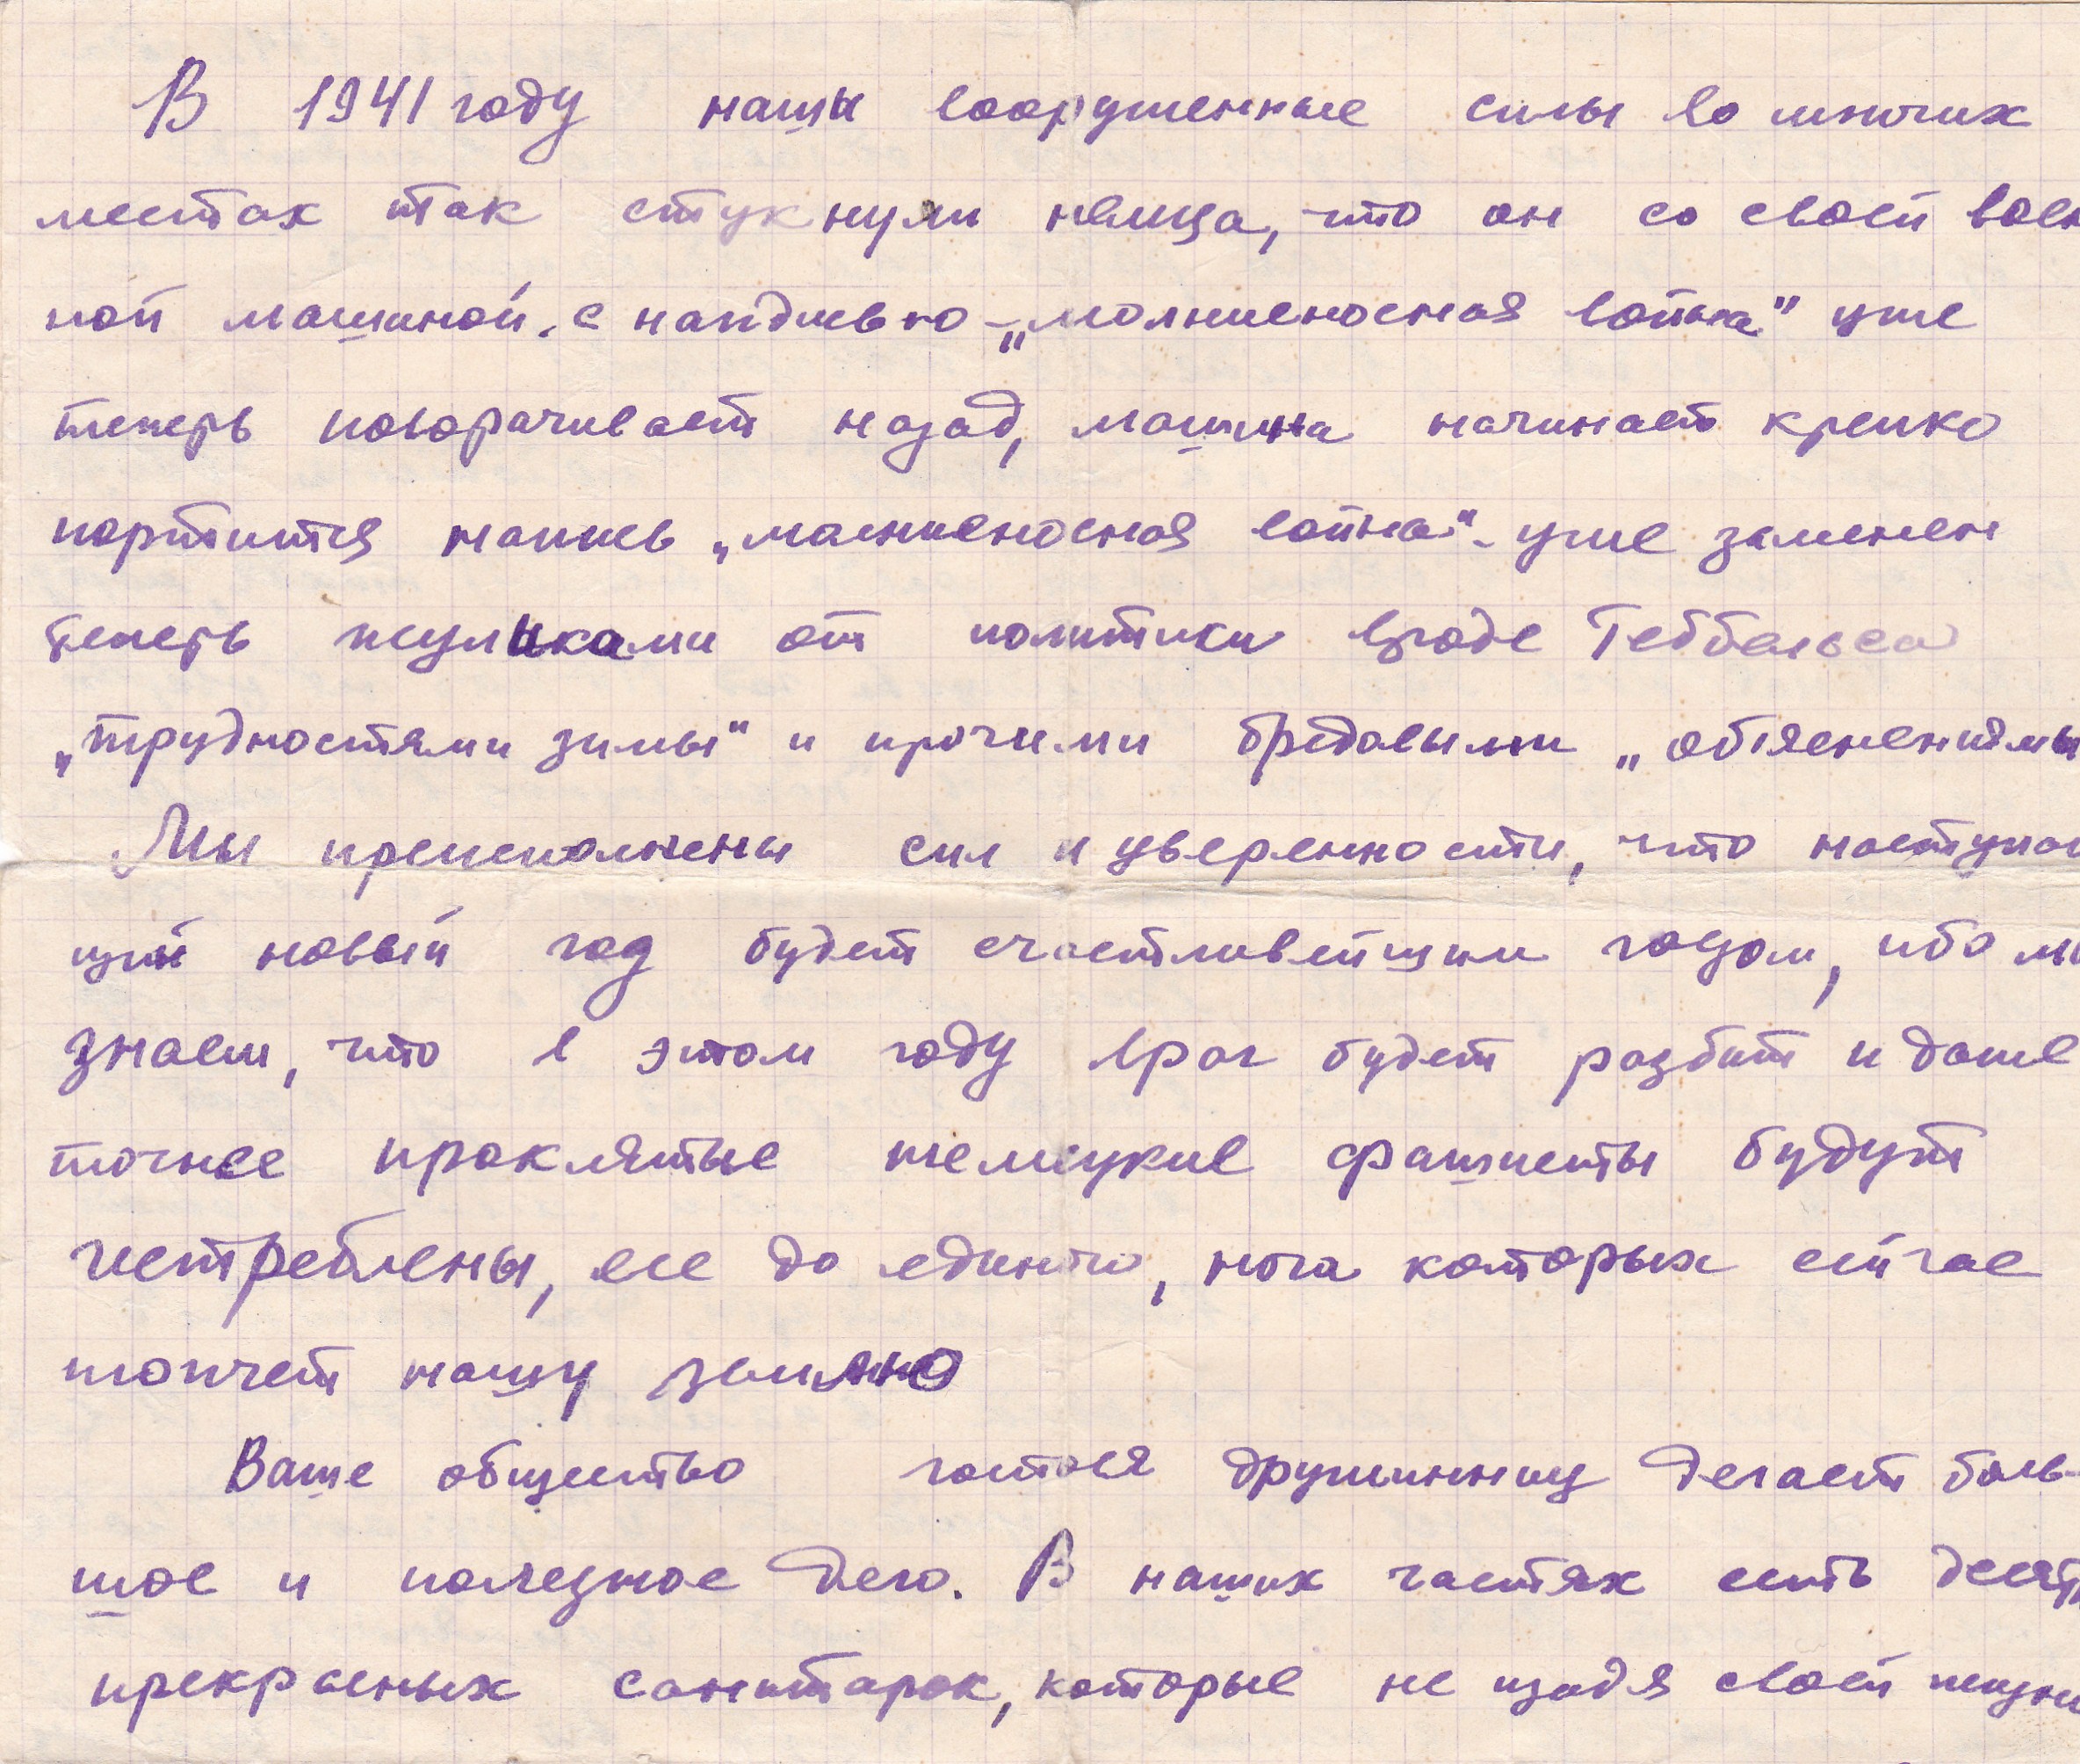 В 1941 году нашы вооруженные силы во многих
местах так стукнули немца, что он со своей воен
ной машиной, с надписью - „молниеносная война" уже
теперь поворачивает назад, машина начинает крепко
портится надпись „молниеносная война" - уже заменен
теперь жуликами от политики вроде Геббельса
„трудностями зимы" и прочими бредовыми „обяснениями
Мы преисполнены сил и уверенности, что наступаю
щий новый год будет счастливейшим годом, ибо мы
знаем, что в этом году враг будет разбит и даже
точнее проклятые немецкие фашисты будут
истреблены, все до единого, нога которых сейчас
топчет нашу землю
Ваше общество готовя дружинниц делает боль-
шое и полезное дело. В наших частях есть десят
прекрасных санитарок, которые не щадя своей жизни